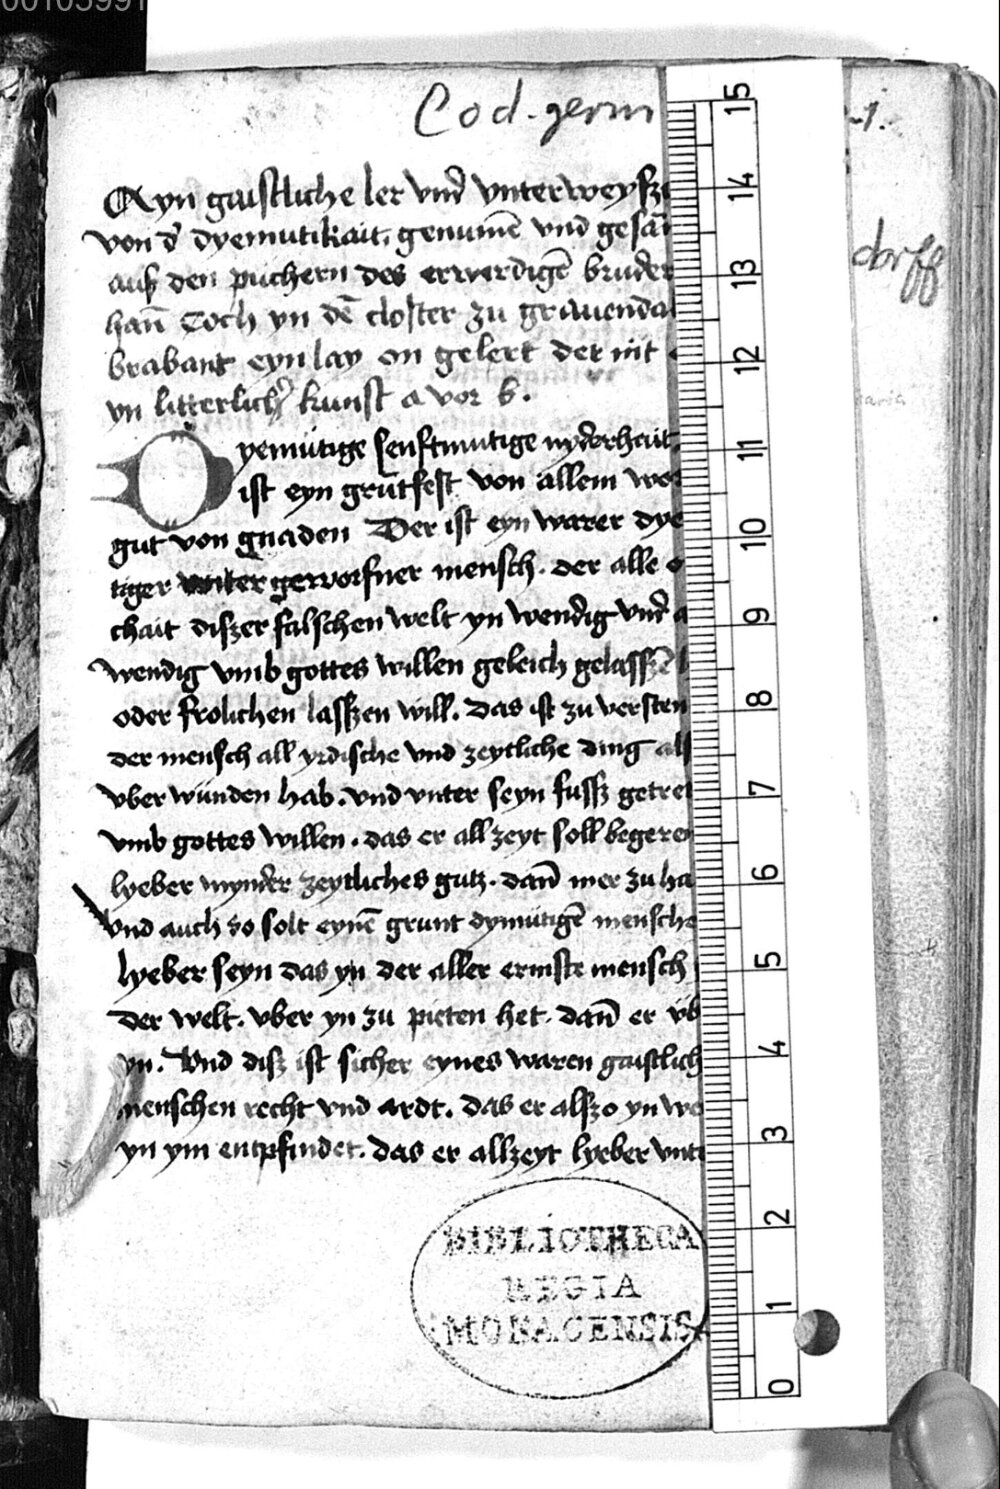 00103991
Cod. germ
-1.
Ayn gaistliche ler vnd vnterweysz
von d' dyemutikait. genumē vnd gesā
ausz den puchern des erwerdigē bruder
dorff
han̄ Toch yn dē closter zu grauendal
brabant eyn lay on gelert der nit
yn litterlich' kunst a vor b.
Dyemütige senftmutige nyderhait
ist eyn grūtfest von allem wor
gut von gnaden Der ist eyn warer dye
tiger vnter geworfner mensch. der alle
chait diszer falschen welt yn wendig vnd a
wendig vmb gottes willen geleich gelasszē
oder frolichen lasszen will. Das ist zu versten
der mensch all yrdische vnd zeytliche ding als
vber wunden hab. vnd vnter seyn fussz getret
vmb gottes willen. das er all zeyt soll begeren
lyeber mynder zeytliches gutz. dan̄ mer zu ha
Vnd auch so solt eynē grunt dymütigē mensche
lyeber seyn das yn der aller ermste mensch
der welt. vber yn zu pieten het. dan̄ er vb
yn. Vnd disz ist sicher eynes waren gaistlich
menschen recht vnd ardt. das er alszo yn we
yn ym entpfindet. das er allzeyt lyeber vnt
BIBLIOTHECA
REGIA
MONACENSIS
15
14
13
12
11
10
9
8
7
6
5
4
3
2
1
0